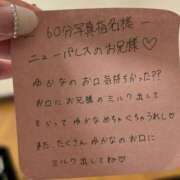 60分写真指名様 ー
ニューパレスのお兄様♡
ゆかなのお口気持ちかった??
お口にお兄様のミルク出して
もらってゆかなめちゃくちゃうれし♡
また、たくさんゆかなのお口に
ミルク出してね♡